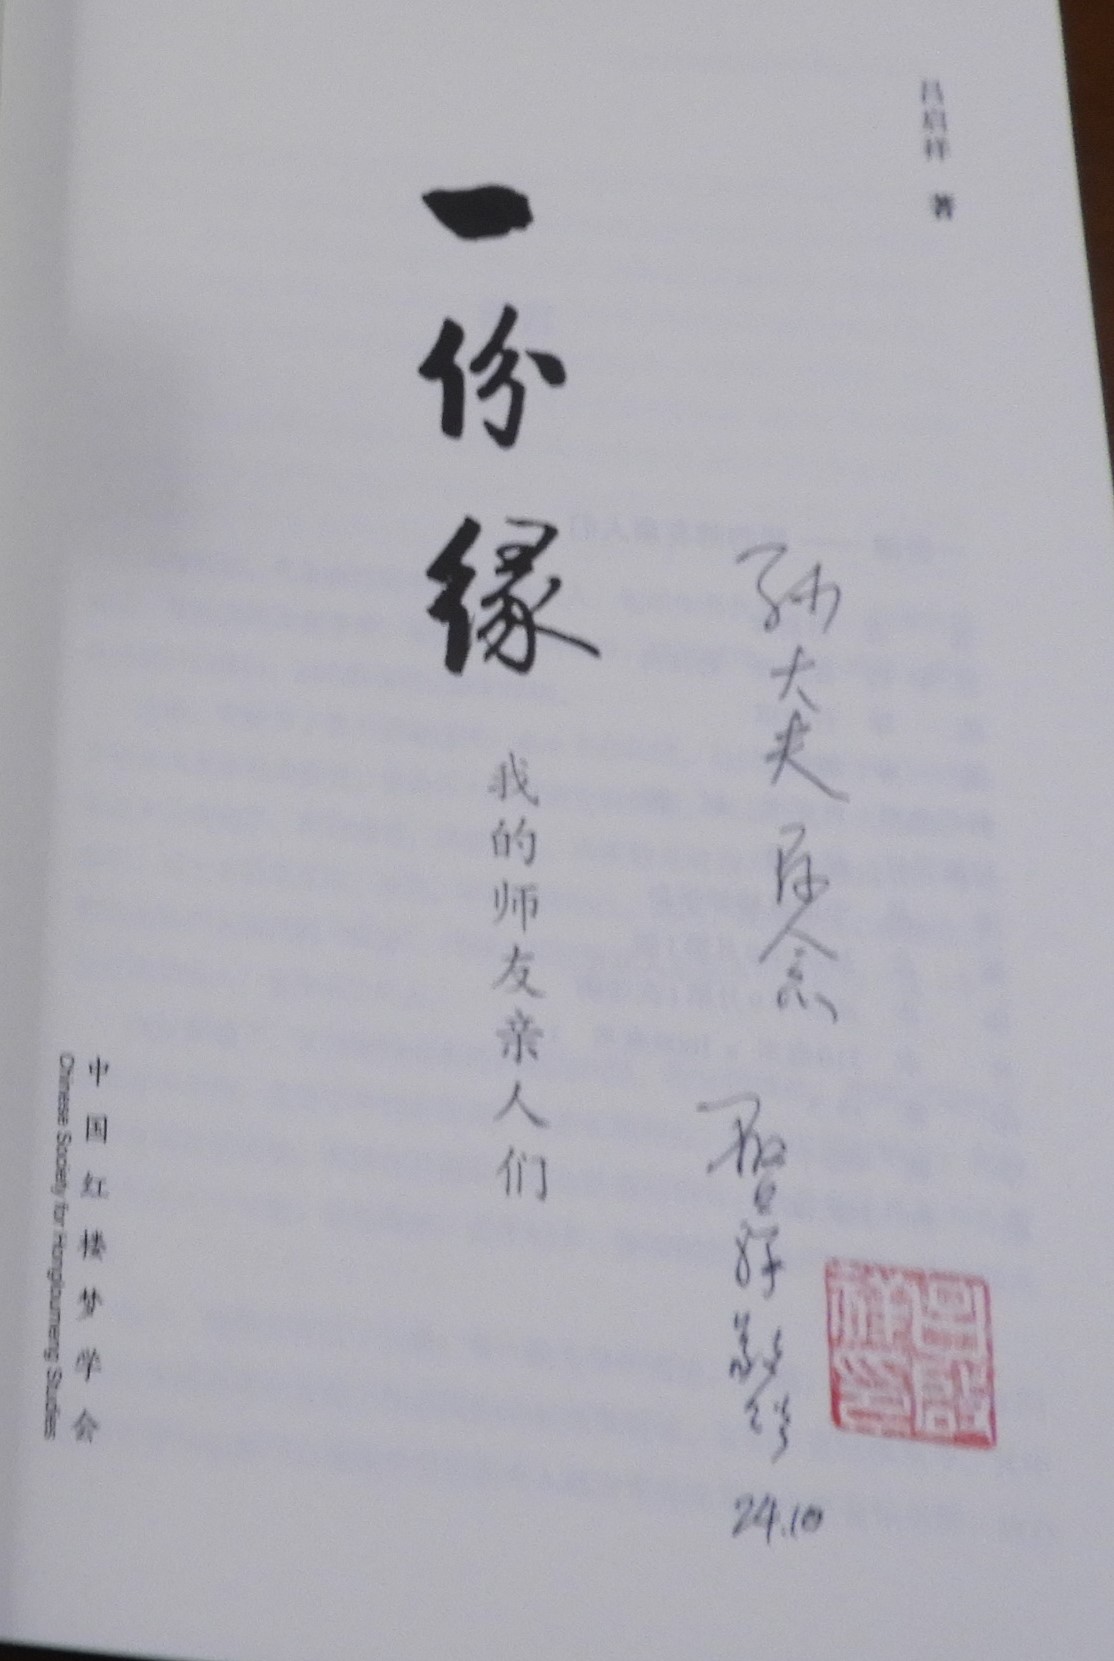 吕启祥 著
一份缘
我的师友亲人们
孙大夫存念
启祥敬赠
24.10
吕启祥印
中国红楼梦学会
Chinese Society for Hongloumeng Studies